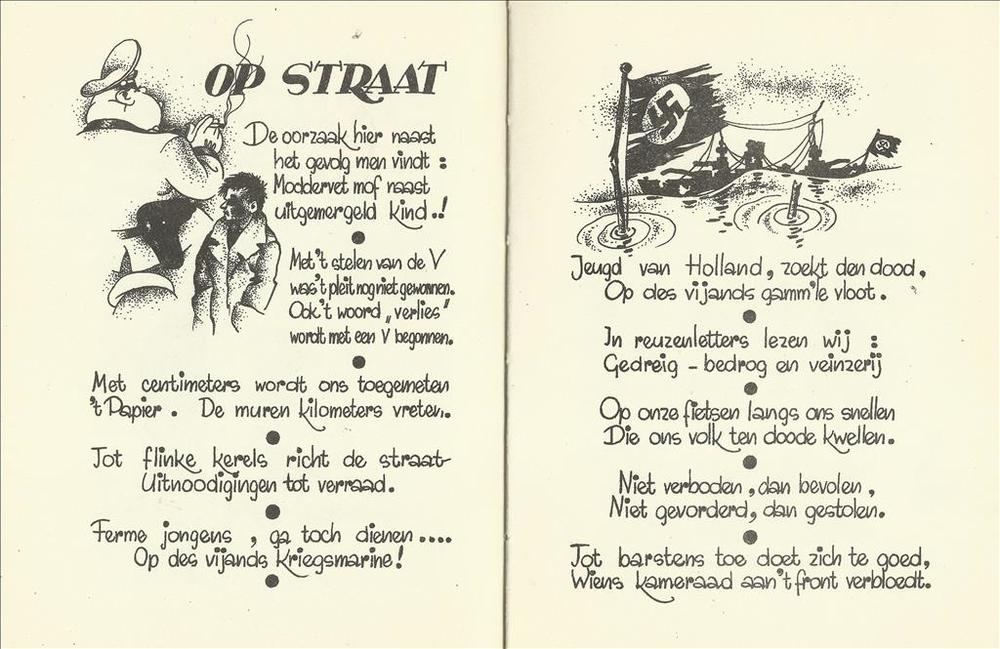 OP STRAAT
De oorzaak hier naast
het gevolg men vindt :
Moddervet mof naast
uitgemergeld kind.!
Met 't stelen van de V
was't pleit nog niet gewonnen.
Ook 't woord „verlies"
wordt met een V begonnen.
Met centimeters wordt ons toegemeten
't Papier. De muren kilometers vreten.
Tot flinke kerels richt de straat
Uitnoodigingen tot verraad.
Ferme jongens, ga toch dienen....
Op des vijands Kriegsmarine!
Jeugd van Holland, zoekt den dood,
Op des vijands gamm'le vloot.
In reuzenletters lezen wij :
Gedreig - bedrog en veinzerij
Op onze fietsen langs ons snellen
Die ons volk ten doode kwellen.
Niet verboden, dan bevolen,
Niet gevorderd, dan gestolen.
Tot barstens toe doet zich te goed,
Wiens kameraad aan't front verbloedt.